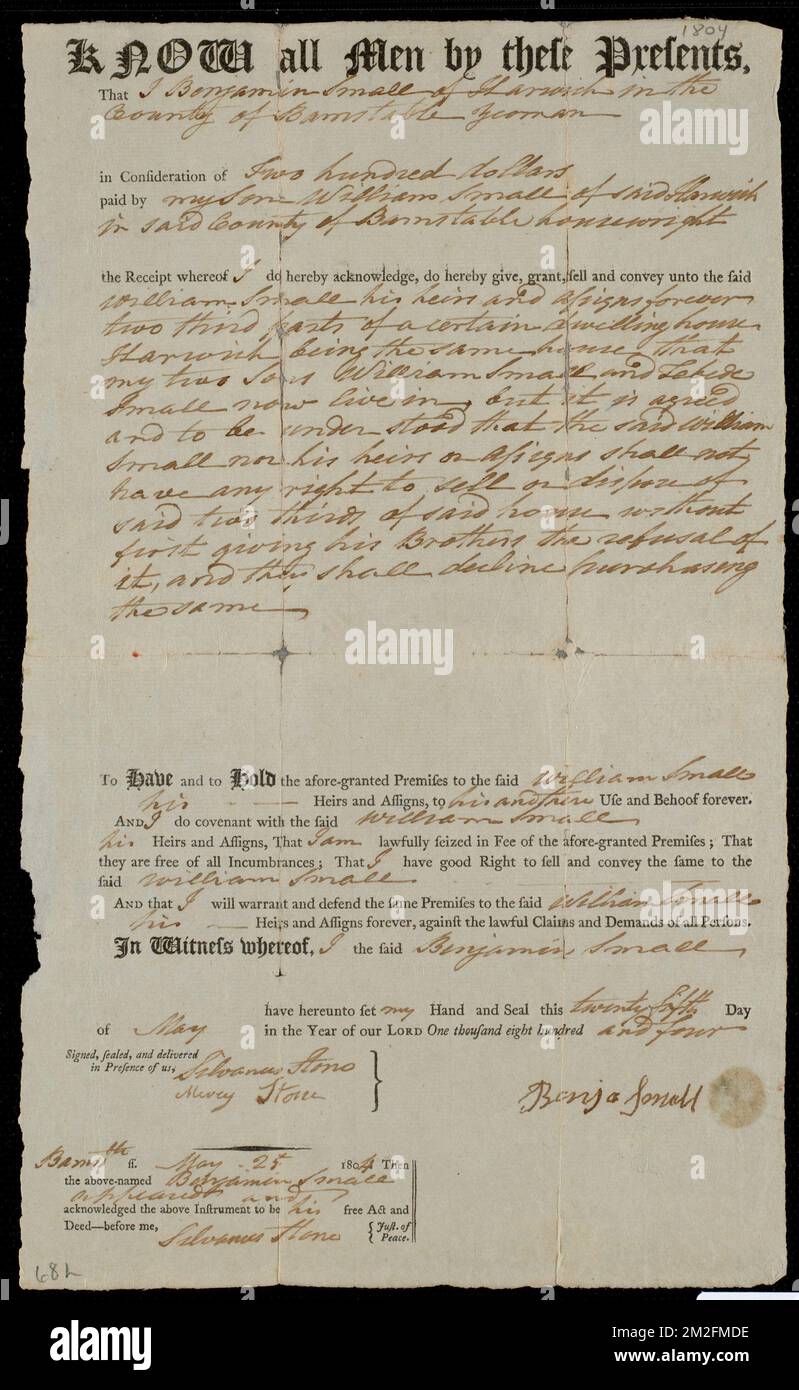 1804
KNOW all Men by theſe Preſents,
That I Benjamin Small of Harwich in the
County of Barnstable yeoman
in Conſideration of Two hundred dollars
paid by my Son William Small of said Harwich
in said County of Barnstable housewright
the Receipt whereof I do hereby acknowledge, do hereby give, grant, ſell and convey unto the ſaid
William Small his heirs and aſsigns forever
two third parts of a certain dwelling house
Harwich being the same house that
my two Sons William Small and Small now live in, but it is agreed
and to be under stood that the said William
Small nor his heirs or aſsigns shall not
have any right to sell or dispose of
said two thirds of said house without
first giving his Brothers the refusal of
it, and they shall decline purchasing
the same
To Have and to Hold the afore-granted Premiſes to the ſaid William Small
his Heirs and Aſſigns, to his and there Uſe and Behoof forever.
AND I do covenant with the ſaid William Small
his Heirs and Aſſigns, That I am lawfully ſeized in Fee of the afore-granted Premiſes; That
they are free of all Incumbrances; That I have good Right to ſell and convey the ſame to the
ſaid William Small
AND that I will warrant and defend the ſame Premiſes to the ſaid William Small
his Heirs and Aſſigns forever, againſt the lawful Claims and Demands of all Perſons.
In Witneſs whereof, I the ſaid Benjamin Small
have hereunto ſet my Hand and Seal this twenty fifth Day
of May in the Year of our LORD One thouſand eight hundred and four
Signed, ſealed, and delivered
in Preſence of us,
Silvanus Stone
Mercy Stone
Benja Small
Barnsth ſſ. May 25 1804 Then
the above-named Benjamin Small
appeared and
acknowledged the above Inſtrument to be his free Act and
Deed—before me, Silvanus Stone { Juſt. of
Peace.
68 L
alamy
alamy
alamy
Image ID: 2M2FMDE
www.alamy.com